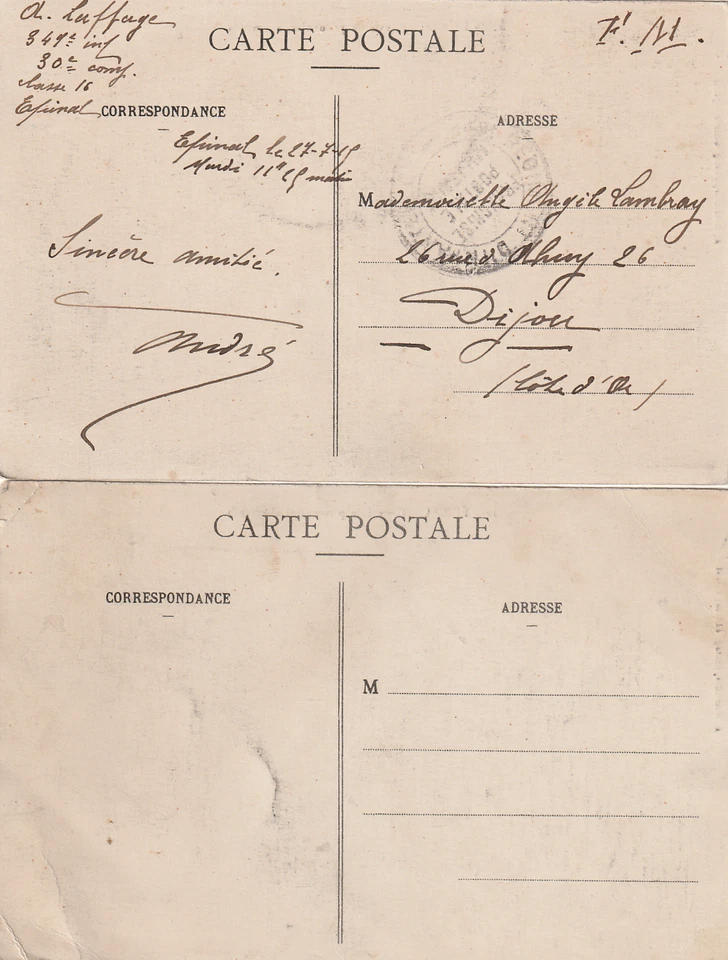 A. Laffage
349e inf
30e comp.
Classe 16
Epinal
CARTE POSTALE
F. M.
CORRESPONDANCE
ADRESSE
Epinal le 27-7-15
Mardi 11h 15 matin
Mademoiselle Angèle Lambray
26 rue d'Ahuy 26
Sincère amitié.
Dijon
André
(Côte d'Or)
CARTE POSTALE
CORRESPONDANCE
ADRESSE
M